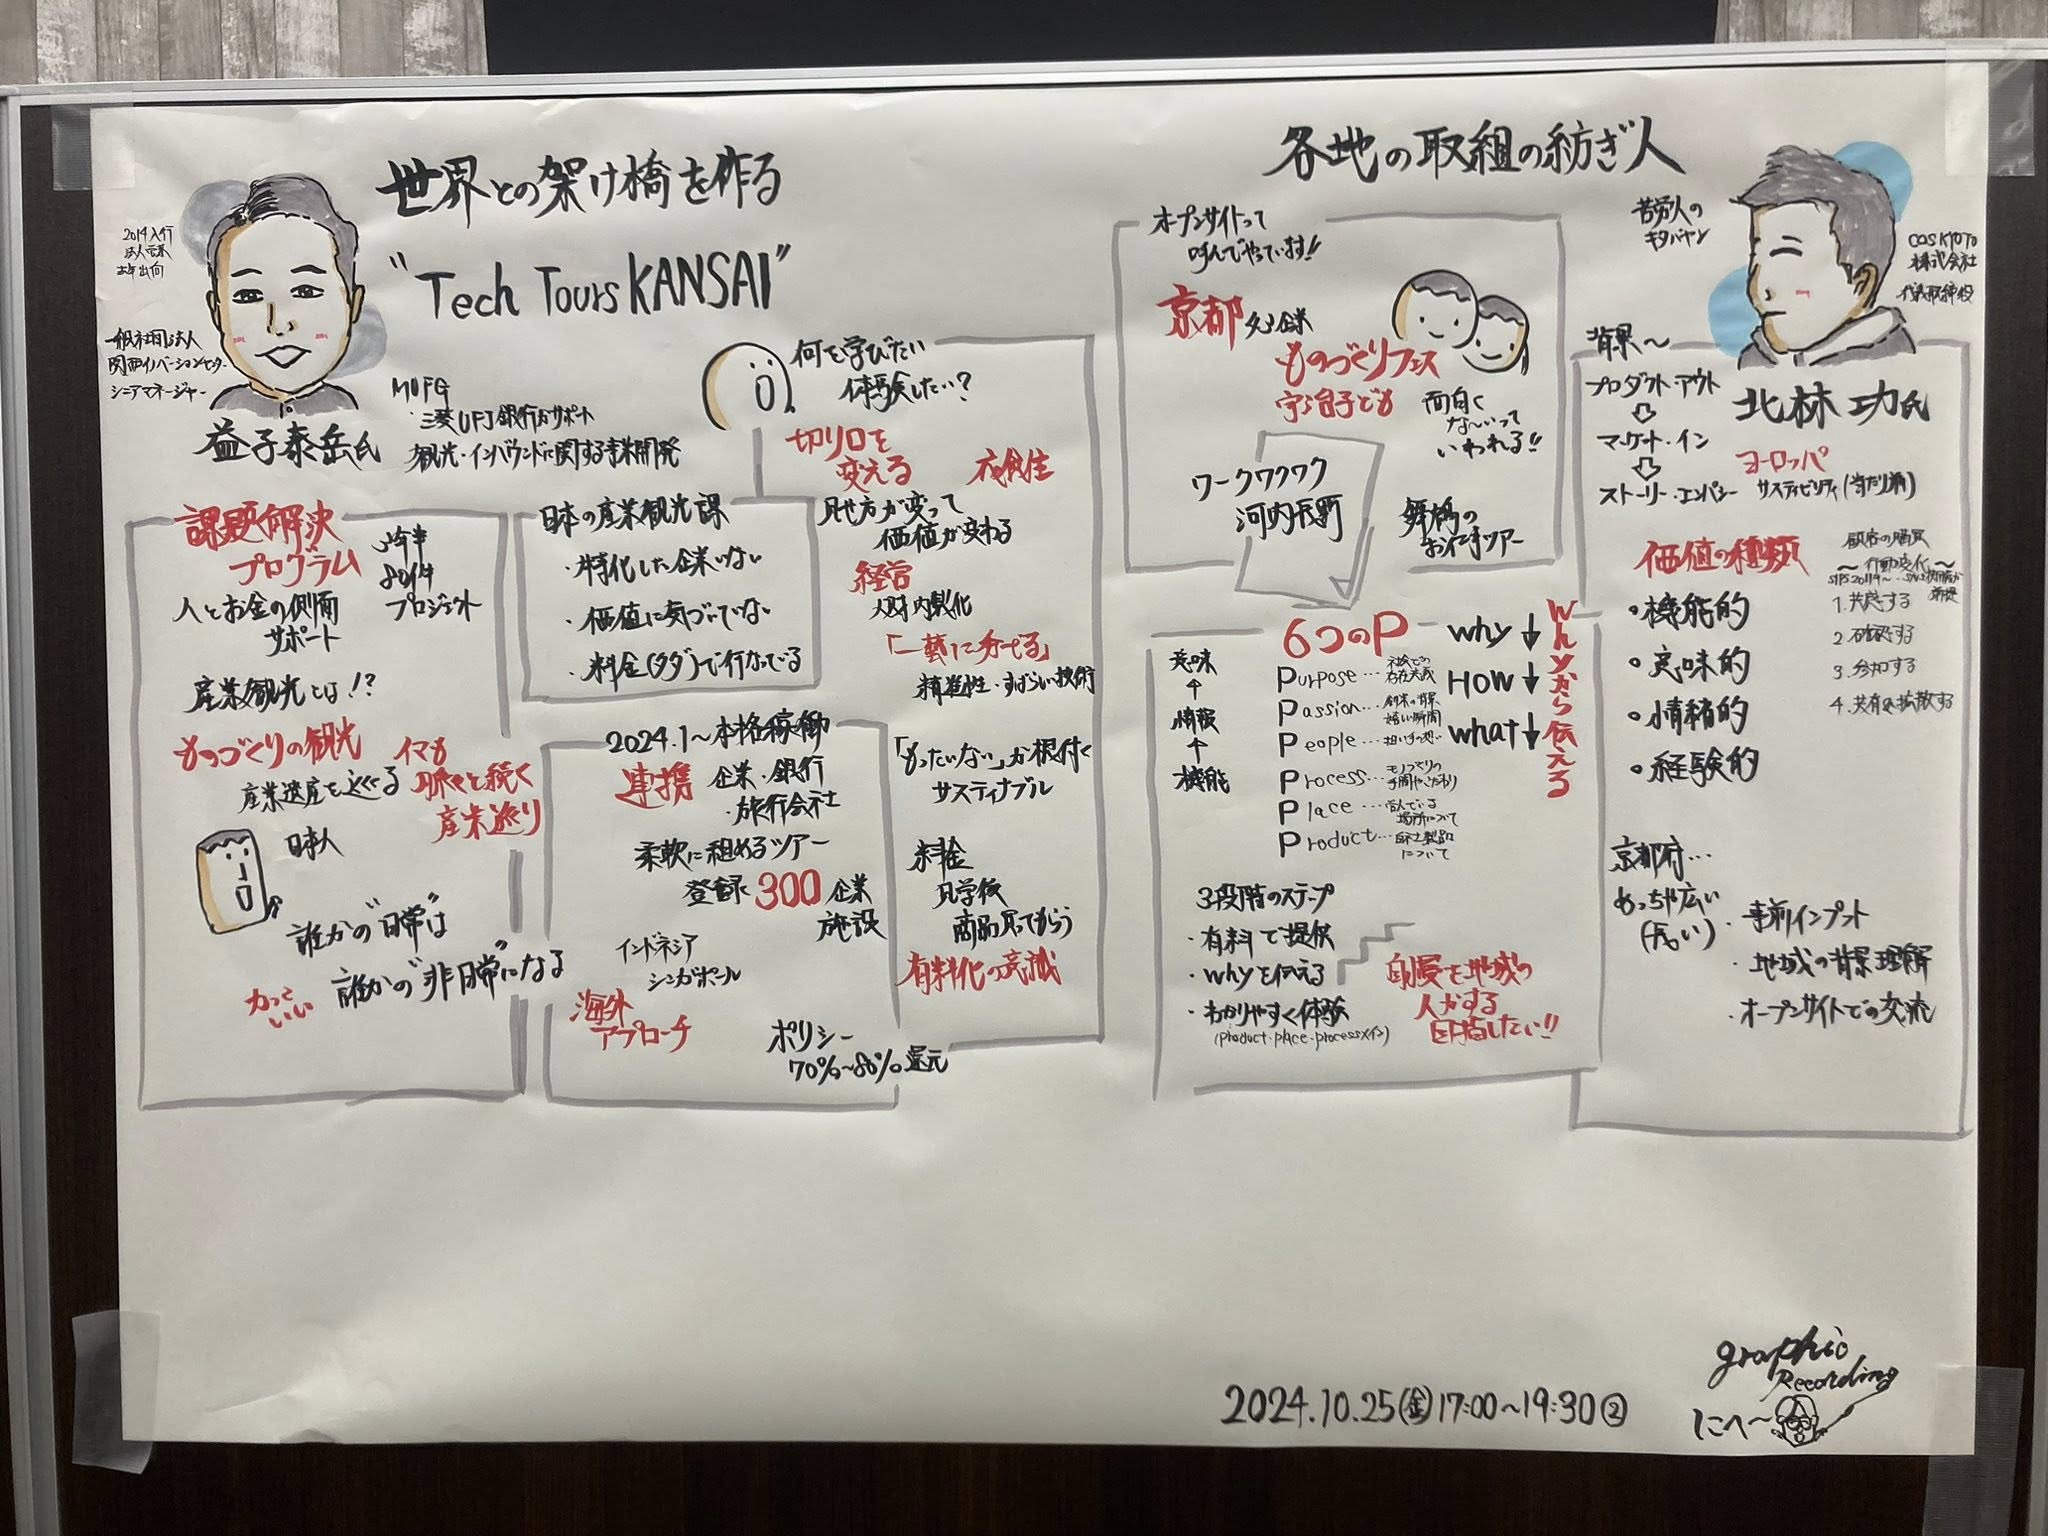 世界との架け橋を作る
"Tech Tours KANSAI"
2014入行
法人営業
去年出向
一般社団法人
関西イノベーションセンター
シニアマネージャー
益子泰岳氏
MUFG
・三菱UFJ銀行がサポート
観光・インバウンドに関する事業開発
課題解決
プログラム
人とお金の側面
サポート
今年
80件
プロジェクト
産業観光とは!?
ものづくりの観光
産業遺産をめぐる
イマも
脈々と続く
産業巡り
日本人
誰かの"日常"は
誰かの"非日常"になる
かっこ
いい
日本の産業観光課
・特化した企業いない
・価値に気づいていない
・料金(タダ)で行なってる
2024.1〜本格稼働
連携
企業・銀行
・旅行会社
柔軟に組めるツアー
登録 300 企業
施設
インドネシア
シンガポール
海外
アプローチ
ポリシー
70%〜80%還元
何を学びたい
体験したい?
切り口を
変える
衣食住
見せ方が変って
価値が変わる
経営
人財内製化
「一藝に秀でる」
精進性・すばらしい技術
「もったいない」が根付く
サスティナブル
料金
見学後
商品買ってもらう
有料化の意識
各地の取組の紡ぎ人
オープンサイトって
呼んでやっています!!
京都
企業
ものづくりフェス
宇治子ども
面白く
な〜いって
いわれる!!
ワークワクワク
河内長野
舞鶴の
ツアー
6つのP
意味
↑
情報
↑
機能
Purpose…社会での
存在意義
Passion…創業の背景
嬉しい瞬間
People…担い手の想い
Process…モノづくりの
手間やこだわり
Place…営んでいる
場所について
Product…自社製品
について
why↓
HOW↓
what↓
Whyから伝える
3段階のステップ
・有料で提供
・whyを伝える
・わかりやすく体験
(product・place・processメイン)
自慢を地域の
人がする
目指したい!!
苦労人の
キタバヤシ
COS KYOTO
株式会社
代表取締役
北林功氏
背景〜
プロダクト・アウト
⇩
マーケット・イン
⇩
ストーリー・エンパシー
ヨーロッパ
サスティビリティ(当たり前)
価値の種類
・機能的
・意味的
・情緒的
・経験的
顧客の購買
〜行動変化〜
1.共感する
2.確認する
3.参加する
4.共有&拡散する
京都府…
めっちゃ広い
(長い)
・事前インプット
・地域の背景理解
・オープンサイトでの交流
2024.10.25(金)17:00〜19:30②
graphic
Recording
にへ〜